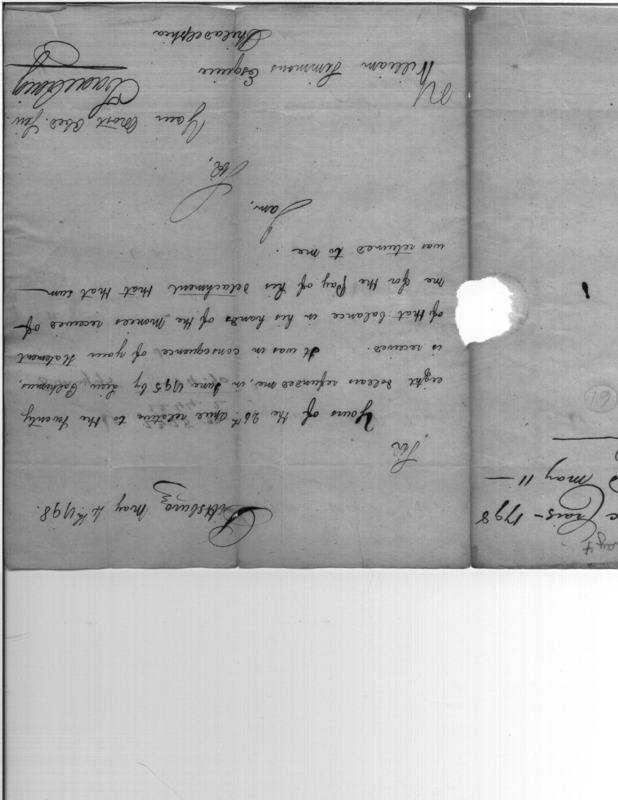 Pittsburg May 4th 1798.
Sir
Yours of the 26th April relative to the twenty
eight dollars refunded me, in June 1795 by Lieu.
is received. It was in consequence of your Statement
of that balance in his hands of the monies received of
me for the Pay of his detachment that that sum
was returned to me.
I am,
Sir,
Your most Obed. Ser.
Isaac Craig
William Simmons Esquire
Philadelphia
Craig - 1798
May 11 -